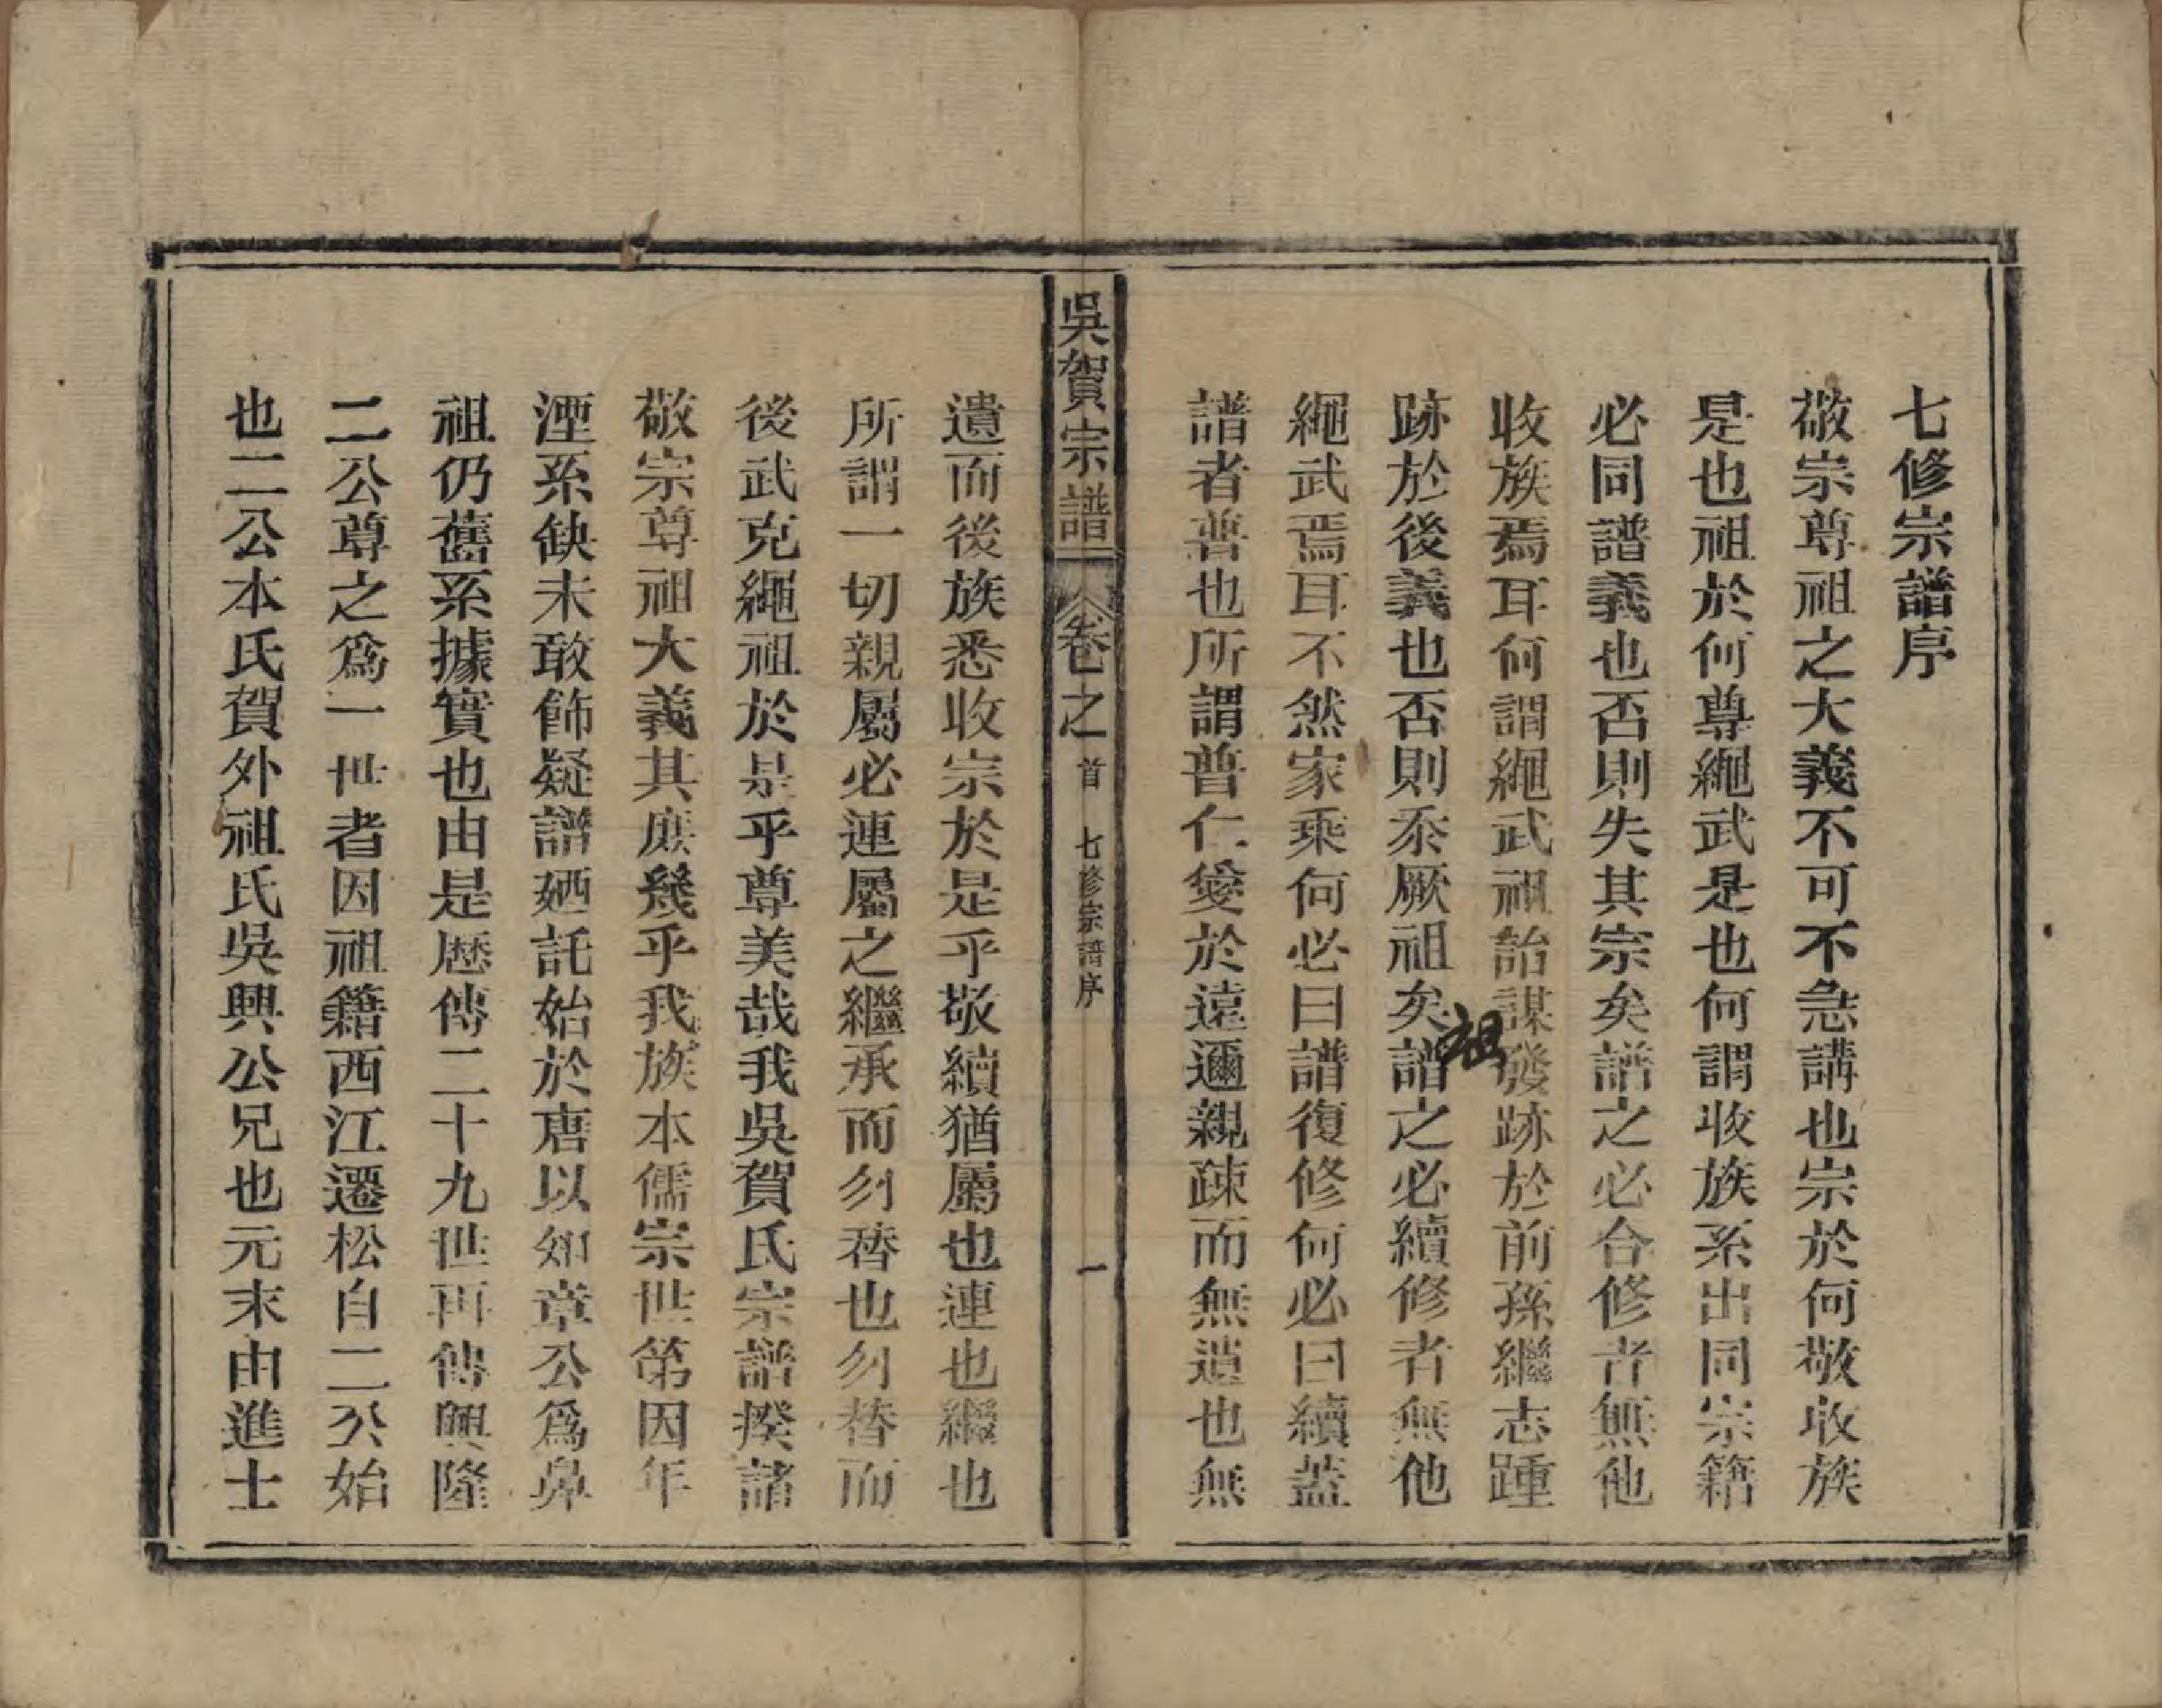 七修宗譜序
敬宗尊祖之大義不可不急講也宗於何敬收族
是也祖於何尊繩武是也何謂收族系出同宗籍
必同譜義也否則失其宗矣譜之必合修者無他
收族焉耳何謂繩武祖詒謀發跡於前孫繼志踵
祖
跡於後義也否則忝厥祖矣譜之必續修者無他
繩武焉耳不然家乘何必曰譜復修何必曰續蓋
譜者普也所謂普仁愛於遠邇親疎而無遺也無
吳賀宗譜
卷之首
七修宗譜序
一
遺而後族悉收宗於是乎敬續猶屬也連也繼也
所謂一切親屬必連屬之繼承而勿替也勿替而
後武克繩祖於是乎尊美哉我吳賀氏宗譜揆諸
敬宗尊祖大義其庶幾乎我族本儒宗世第因年
湮系缺未敢飾疑譜廼託始於唐以如章公爲鼻
祖仍舊系據實也由是歴傳二十九世再傳興隆
二公尊之爲一世者因祖籍西江遷松自二公始
也二公本氏賀外祖氏吳興公兄也元末由進士